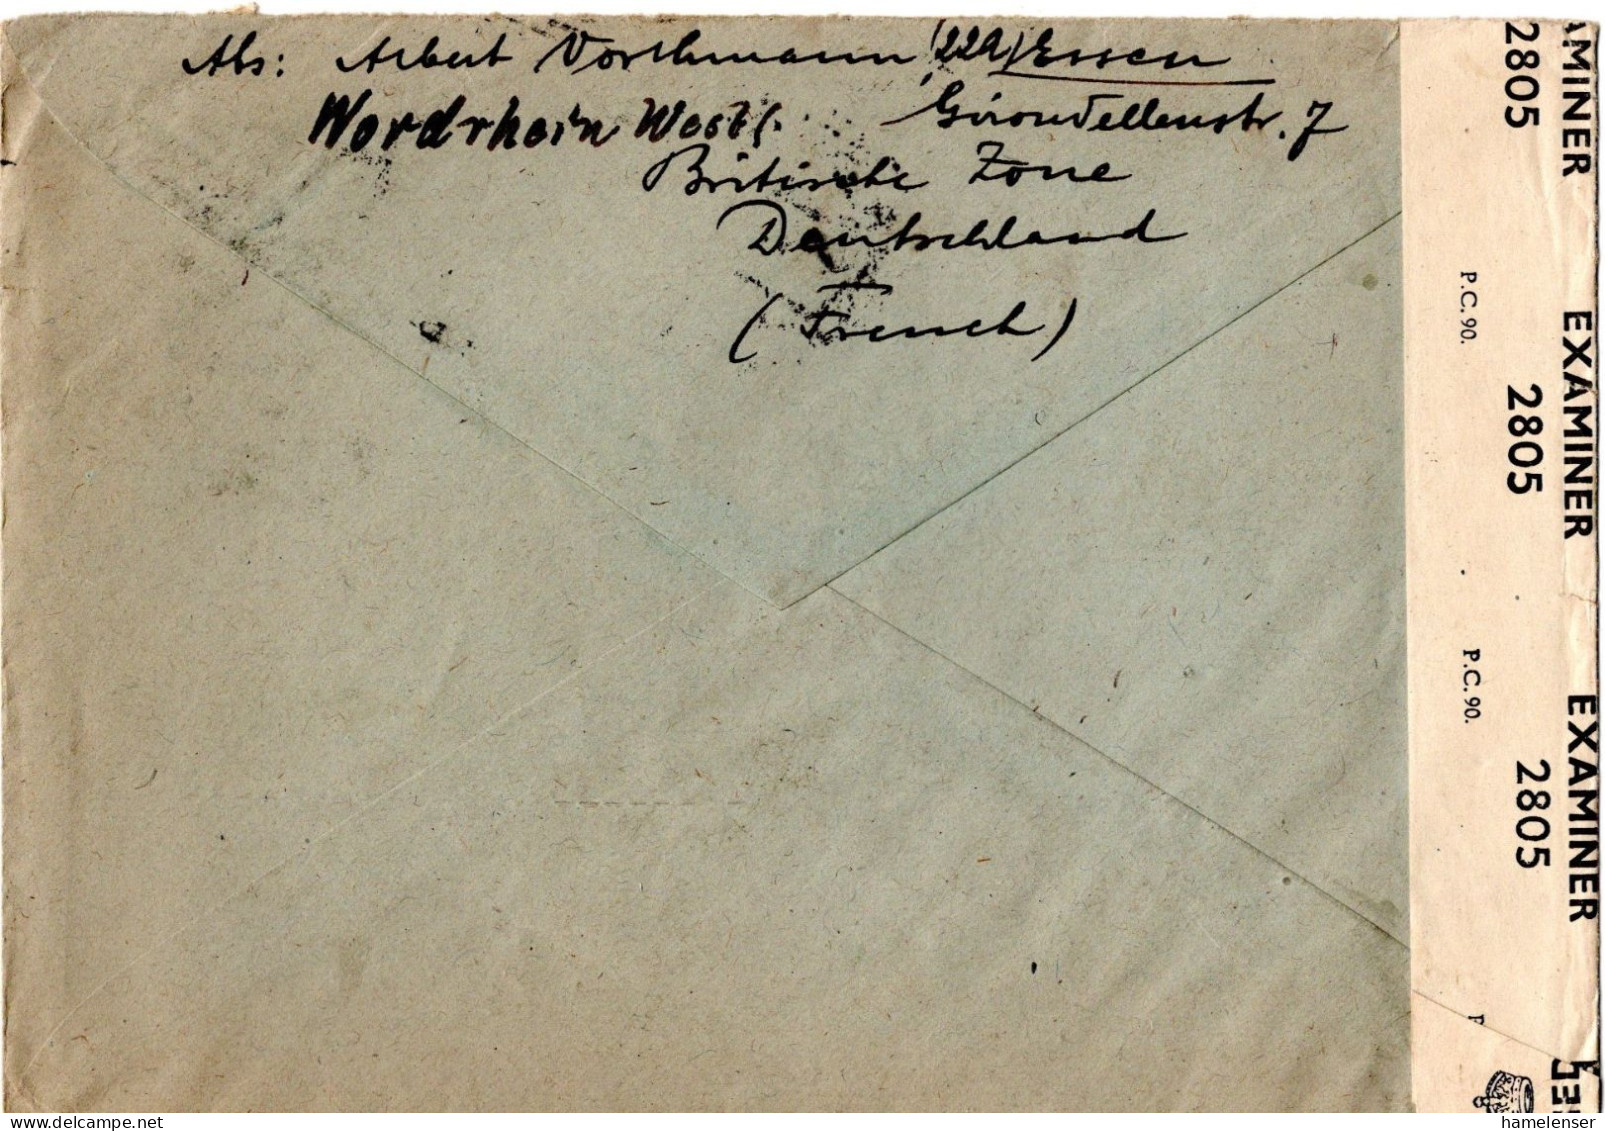 Abs: Albert Vorthmann (22a) Essen
Nordrhein Westf. Girondellenstr. 7
Britische Zone
Deutschland
(French)
AMINER
2805
P.C. 90.
EXAMINER
2805
P.C. 90.
EXAMINER
2805
P
hamelenser
www.delcampe.net